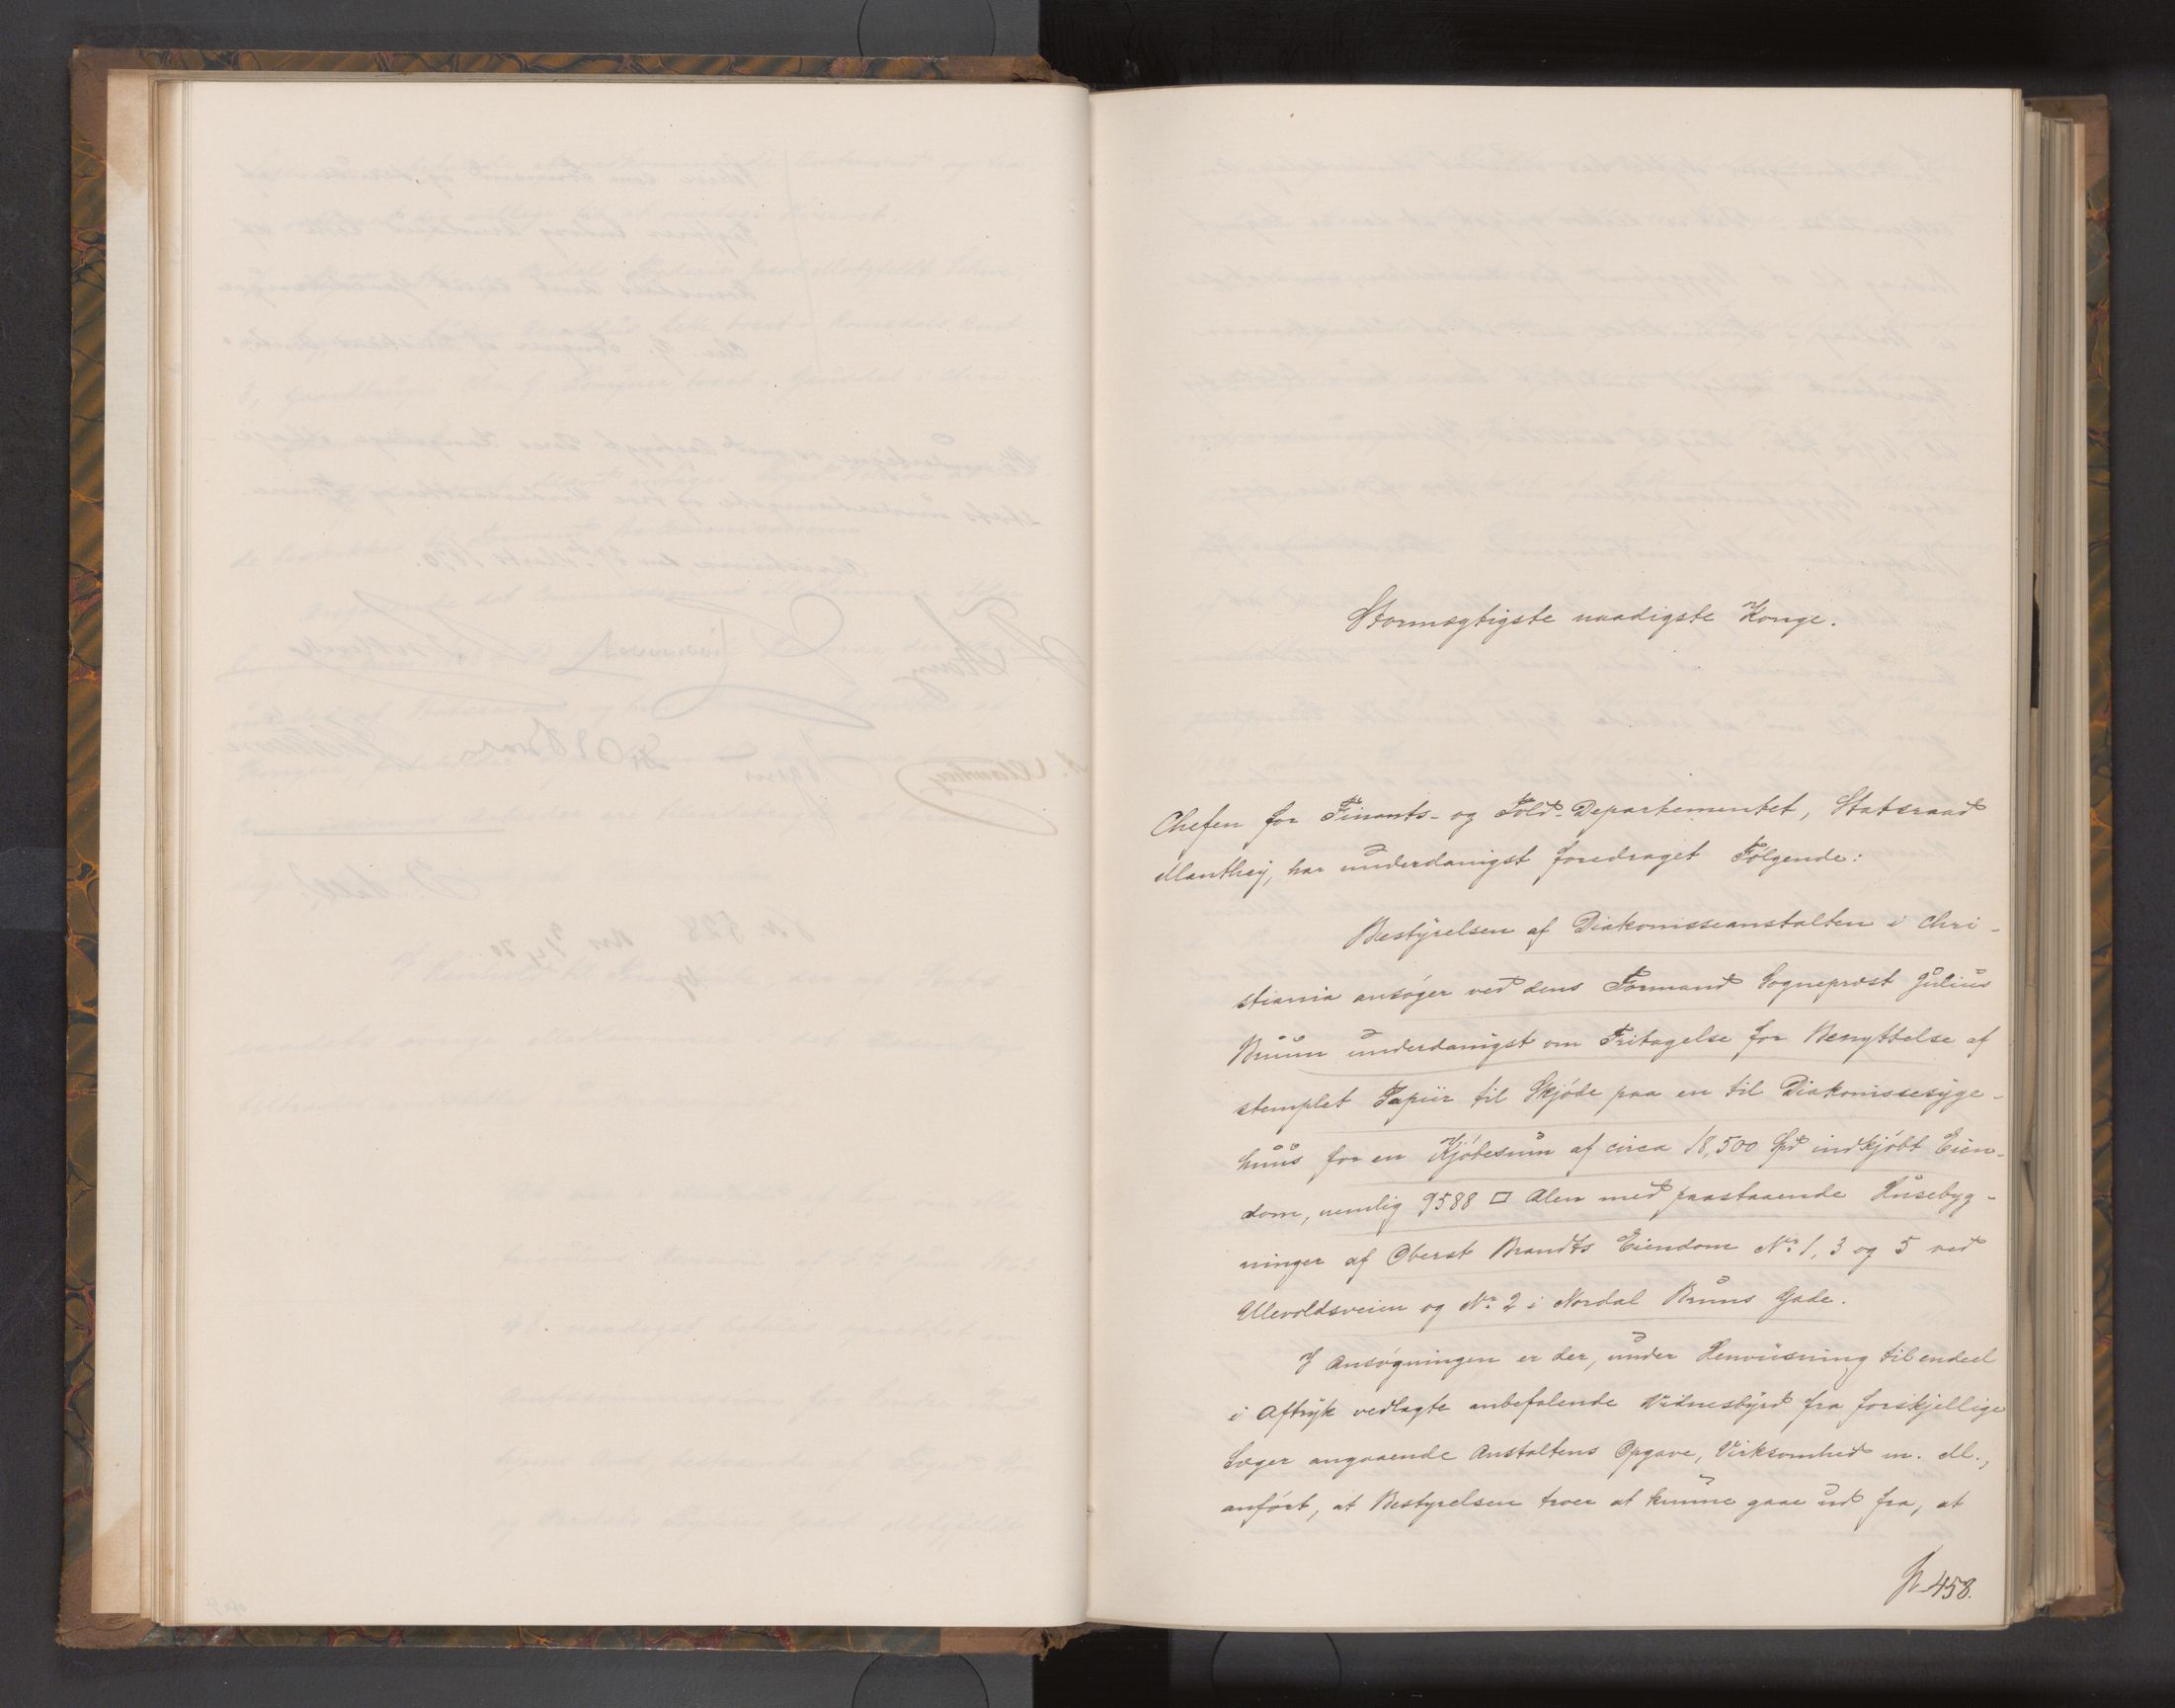 Stormægtigste naadigste Konge.
Chefen for Finants- og Told-Departementet, Statsraad
Manthey, har underdanigst foredraget Følgende:
Bestyrelsen af Diakonisseanstalten i Chri-
stiania ansøger ved dens Formand Sognepræst Julius
Bruun underdanigst om Fritagelse for Benyttelse af
stemplet Papiir til Skjøde paa en til Diakonissesyge-
huus for en Kjøbesum af circa 18,500 Spd indkjøbt Eien-
dom, nemlig 9588 □ Alen med paastaaende Husebyg-
ninger af Oberst Brandts Eiendom No. 1, 3 og 5 ved
Ullevoldsveien og No. 2 i Nordal Bruns Gade.
I Ansøgningen er der, under Henviisning til endeel
i Aftryk vedlagte anbefalende Vidnesbyrd fra forskjellige
Læger angaaende Anstaltens Opgave, Virksomhed m. M.,
anført, at Bestyrelsen troer at kunne gaae ud fra, at
458.